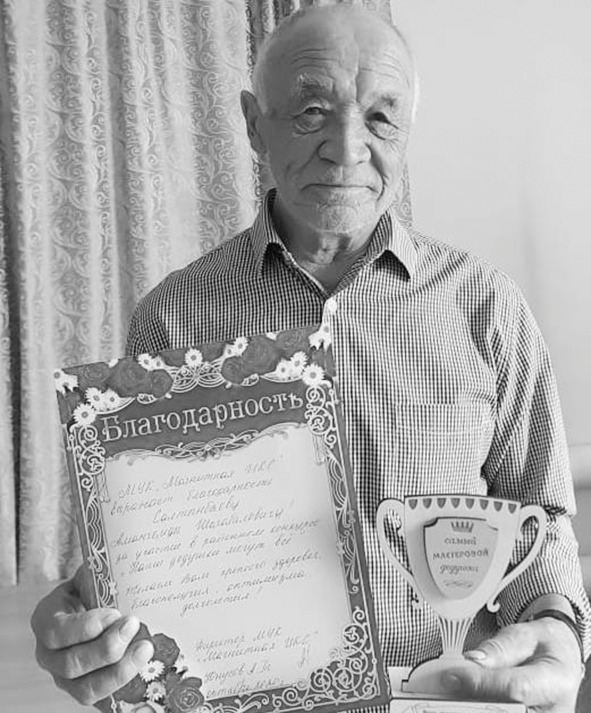 Благодарность
МУК "Магнитная ЦКС"
выражает благодарность
за участие в районном конкурсе
"Наши дедушки могут всё"
Желаем Вам крепкого здоровья,
благополучия, оптимизма,
долголетия!
Директор МУК
"Магнитная ЦКС"
самый
мастеровой
дедушка